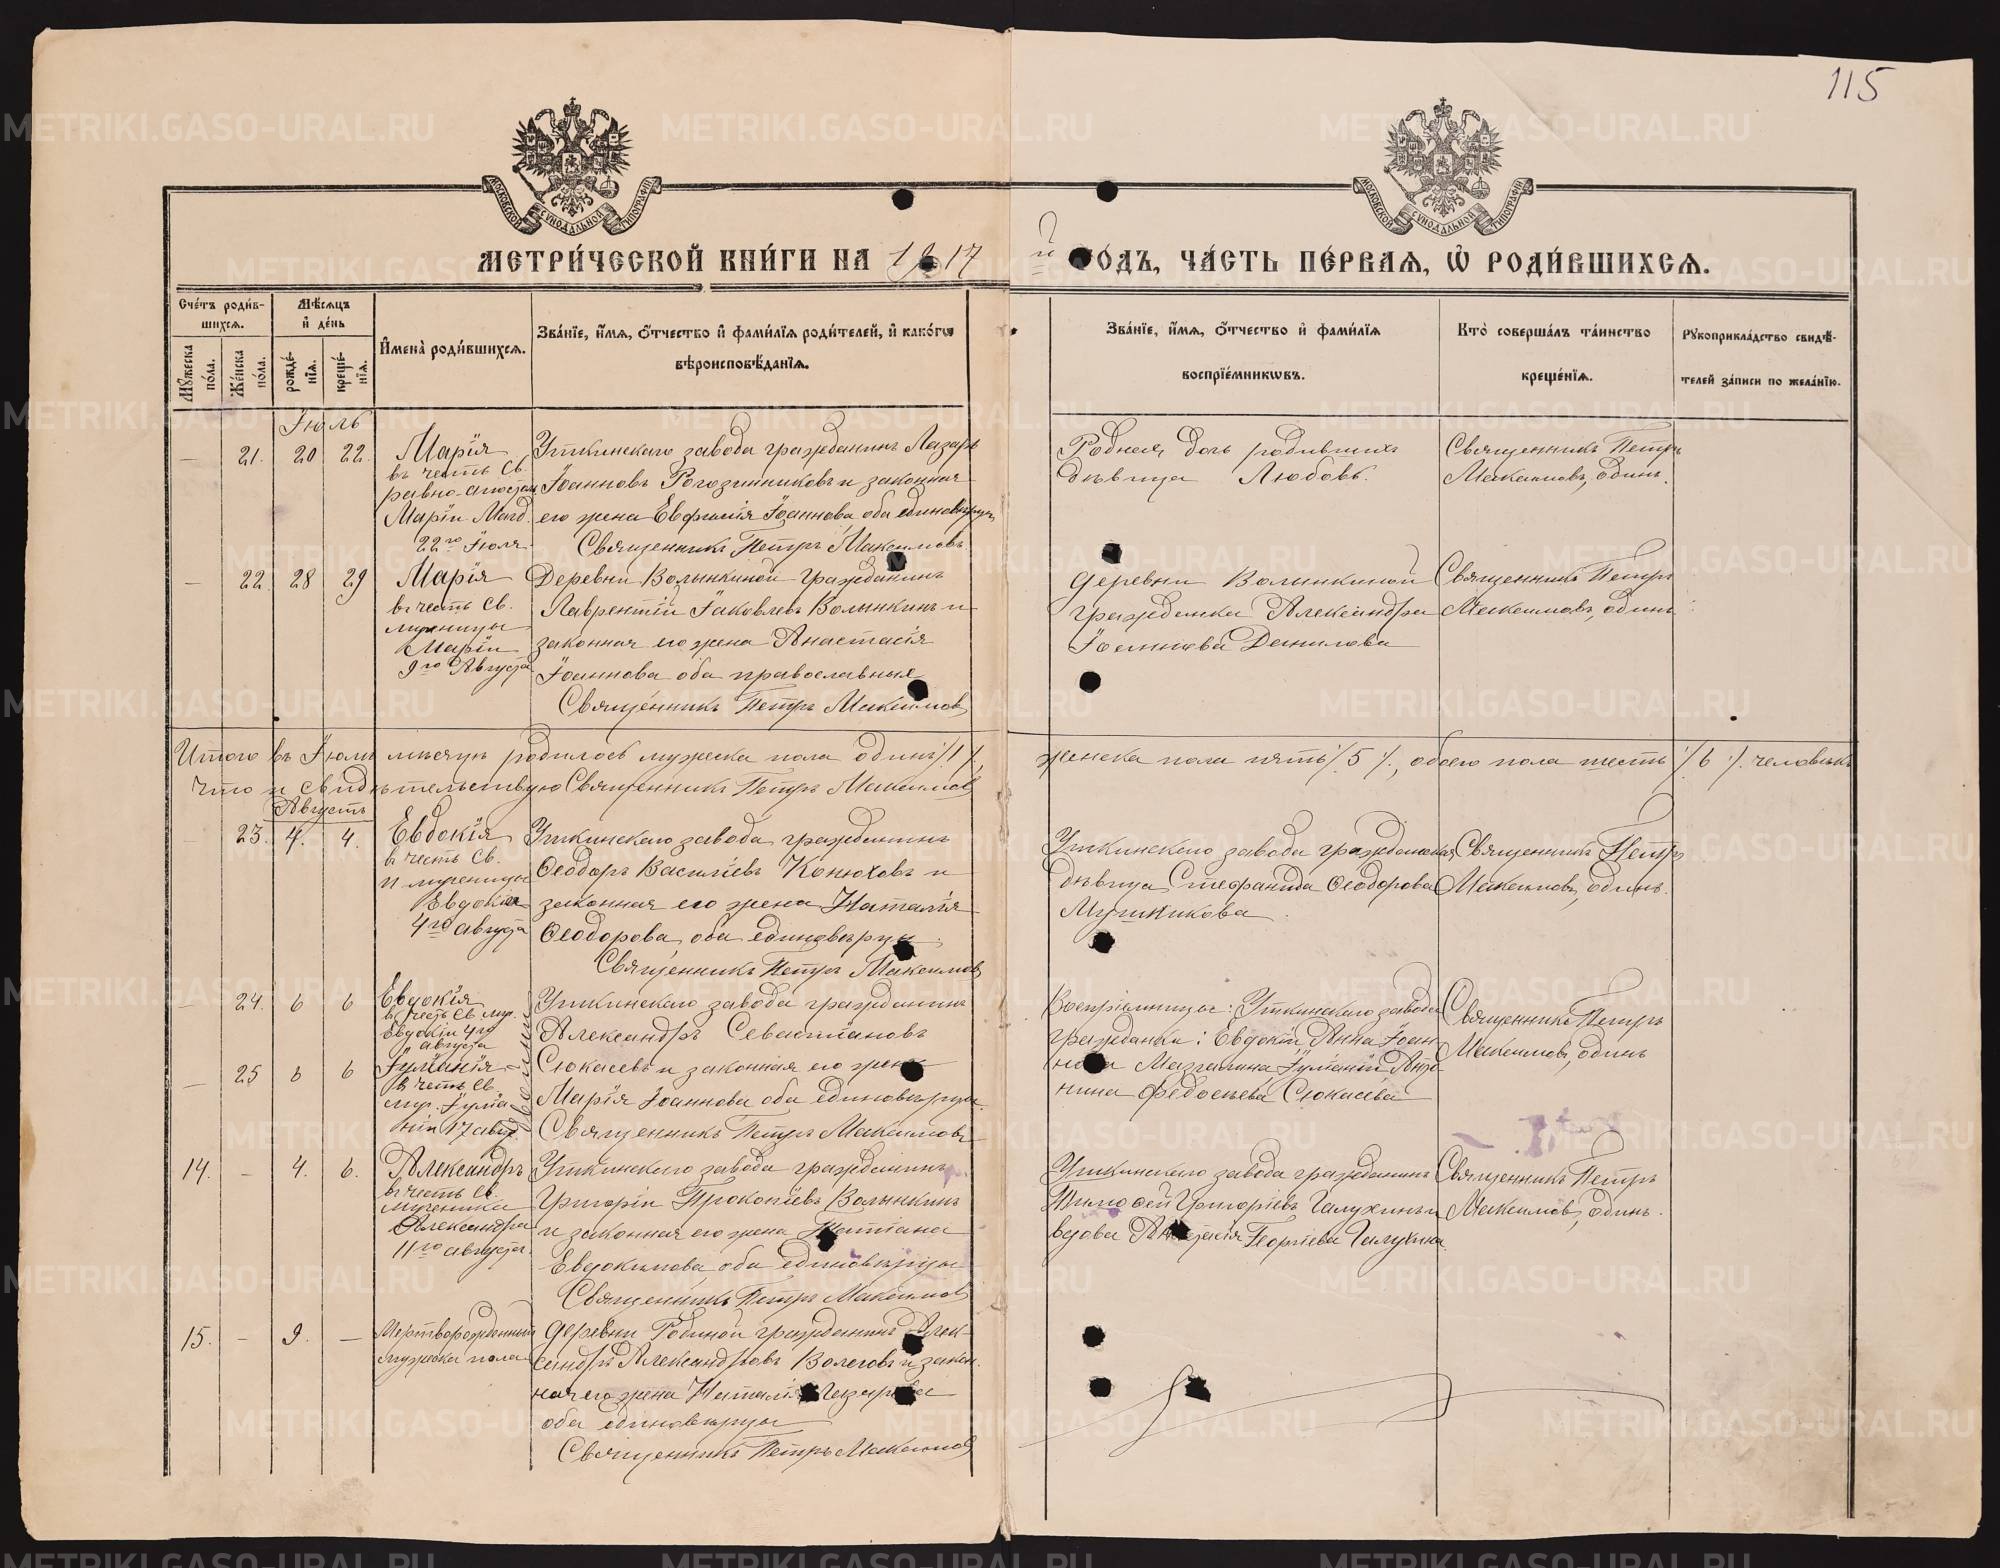 115
МОСКОВСКОЙ СѴНОДАЛЬНОЙ ТИПОГРАФІИ
МОСКОВСКОЙ СѴНОДАЛЬНОЙ ТИПОГРАФІИ
МЕТРИ́ЧЕСКОЙ КНИ́ГИ НА 1917 й ГОДЪ, ЧА́СТЬ ПЕ́РВАѦ, Ѡ҆ РОДИ́ВШИХСѦ.
Сче́тъ роди́в-
шихсѧ.
Мꙋ́жеска по́ла.
Же́нска по́ла.
Мѣ́сѧцъ
и҆ де́нь
рожде́-
нїѧ.
креще́-
нїѧ.
И҆мена̀ роди́вшихсѧ.
Зва́нїе, и҆́мѧ, ѻ҆́тчество и҆ фами́лїѧ роди́телей, и҆ како́гѡ
вѣроисповѣ́данїѧ.
Зва́нїе, и҆́мѧ, ѻ҆́тчество и҆ фами́лїѧ
воспрїе́мникѡвъ.
Кто̀ соверша́лъ та́инство
креще́нїѧ.
Рꙋкоприкла́дство свидѣ́-
телей за́писи по жела́нїю.
Іюль
— 21. 20 22.
Марія
въ честь Св.
равно-апостол
Маріи Магд.
22го Іюля
Уткинскаго завода гражданинъ Лазарь
Іоанновъ Рогозинниковъ и законная
его жена Евфимія Іоаннова, оба единовѣрцы
Священникъ Петръ Максимовъ
Родная дочь родившихъ
дѣвица Любовь.
Священникъ Петръ
Максимовъ, одинъ.
— 22. 28 29
Марія
въ честь Св.
мученицы
Маріи
9го Августа
Деревни Волынкиной гражданинъ
Лаврентій Іаковлевъ Волынкинъ и
законная его жена Анастасія
Іоаннова оба православные
Священникъ Петръ Максимовъ
Деревни Волынкиной
гражданка Александра
Іоаннова Данилова
Священникъ Петръ
Максимовъ, одинъ
Итого въ Іюлѣ мѣсяцѣ родилось мужеска пола одинъ /1/, женска пола пять /5/, обоего пола шесть /6/ человѣкъ
Что и свидѣтельствую Священникъ Петръ Максимовъ
Августъ
— 23. 4. 4.
Евдокія
въ честь Св.
мученицы
Евдокіи
4го августа
Уткинскаго завода гражданинъ
Ѳеодоръ Василіевъ Конюховъ и
законная его жена Наталія
Ѳеодорова, оба единовѣрцы.
Священникъ Петръ Максимовъ
Уткинскаго завода гражданская
дѣвица Стефанида Ѳеодорова
Священникъ Петръ
Максимовъ, одинъ.
— 24. 6 6
Евдокія
въ честь Св. муч.
Евдокіи 4го
августа
— 25 6 6
Іуліанія
въ честь Св.
муч. Іуліа-
ніи 17 авг.
Уткинскаго завода гражданинъ
Александръ Севастіановъ
Сюкасевъ и законная его жена
Марія Іоаннова оба единовѣрцы.
Священникъ Петръ Максимовъ
Воспріемницы: Уткинскаго завода
гражданки: Евдокіи, Анна Іоан-
нова Мазгалина, Іуліаніи, Анто-
нина Федосьева Сюкасева
Священникъ Петръ
Максимовъ, одинъ
14. — 4. 6.
Александръ
въ честь Св.
мученика
Александра
11го августа.
Уткинскаго завода гражданинъ
Григорій Прокопіевъ Волынкинъ
и законная его жена Татіана
Евдокимова, оба единовѣрцы
Священникъ Петръ Максимовъ
Уткинскаго завода гражданинъ
Тимофей Григоріевъ Галухинъ и
вдова Анастасія Георгіева Галухина.
Священникъ Петръ
Максимовъ, одинъ.
15. — 9. —
Мертворожденный
мужеска пола
Деревни Родиной гражданинъ Алек-
сандръ Александровъ Волеговъ и закон.
ная его жена Наталія Лазарева
оба единовѣрцы
Священникъ Петръ Максимовъ